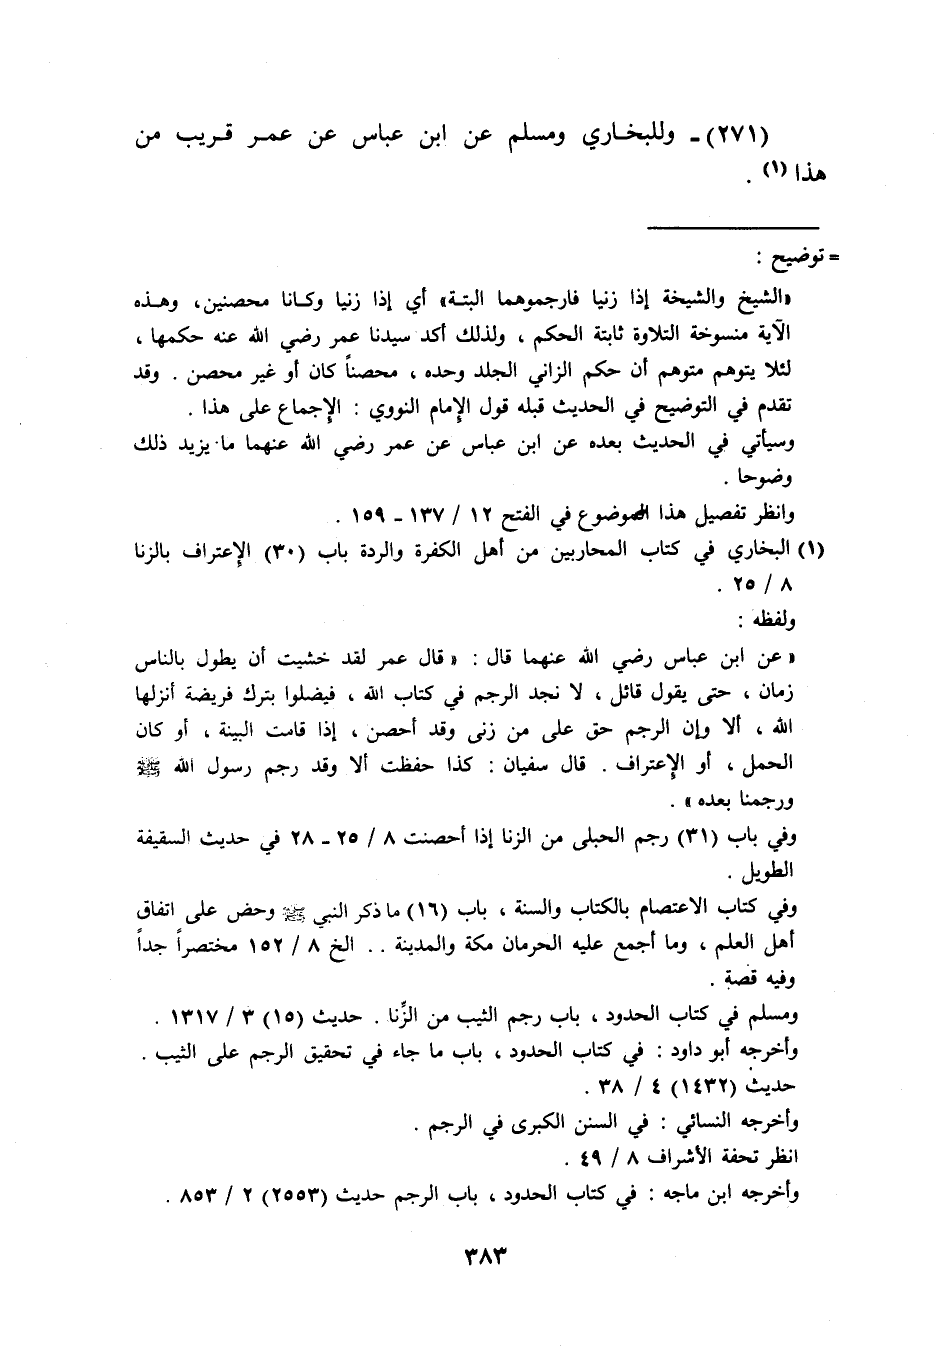 (٢٧١) ـ وللبخـاري ومسلم عن ابن عباس عن عمـر قـريب من
هذا (١) .
= توضيح :
«الشيخ والشيخة إذا زنيا فارجموهما البتـة» أي إذا زنيا وكـانا محصنين، وهـذه
الآية منسوخة التلاوة ثابتة الحكم ، ولذلك أكد سيدنا عمر رضي الله عنه حكمها ،
لئلا يتوهم متوهم أن حكم الزاني الجلد وحده ، محصناً كان أو غير محصن . وقد
تقدم في التوضيح في الحديث قبله قول الإمام النووي : الإجماع على هذا .
وسيأتي في الحديث بعده عن ابن عباس عن عمر رضي الله عنهما ما يزيد ذلك
وضوحا .
وانظر تفصيل هذا الموضوع في الفتح ١٢ / ١٣٧ ـ ١٥٩ .
(١) البخاري في كتاب المحاربين من أهل الكفرة والردة باب (٣٠) الإعتراف بالزنا
٨ / ٢٥ .
ولفظه :
« عن ابن عباس رضي الله عنهما قال : « قال عمر لقد خشيت أن يطول بالناس
زمان ، حتى يقول قائل ، لا نجد الرجم في كتاب الله ، فيضلوا بترك فريضة أنزلها
الله ، ألا وإن الرجم حق على من زنى وقد أحصن ، إذا قامت البينة ، أو كان
الحمل ، أو الإعتراف . قال سفيان : كذا حفظت ألا وقد رجم رسول الله ﷺ
ورجمنا بعده » .
وفي باب (٣١) رجم الحبلى من الزنا إذا أحصنت ٨ / ٢٥ ـ ٢٨ في حديث السقيفة
الطويل .
وفي كتاب الاعتصام بالكتاب والسنة ، باب (١٦) ما ذكر النبي ﷺ وحض على اتفاق
أهل العلم ، وما أجمع عليه الحرمان مكة والمدينة .. الخ ٨ / ١٥٢ مختصراً جداً
وفيه قصة .
ومسلم في كتاب الحدود ، باب رجم الثيب من الزِّنا . حديث (١٥) ٣ / ١٣١٧ .
وأخرجه أبو داود : في كتاب الحدود ، باب ما جاء في تحقيق الرجم على الثيب .
حديث (١٤٣٢) ٤ / ٣٨ .
وأخرجه النسائي : في السنن الكبرى في الرجم .
انظر تحفة الأشراف ٨ / ٤٩ .
وأخرجه ابن ماجه : في كتاب الحدود ، باب الرجم حديث (٢٥٥٣) ٢ / ٨٥٣ .
٣٨٣